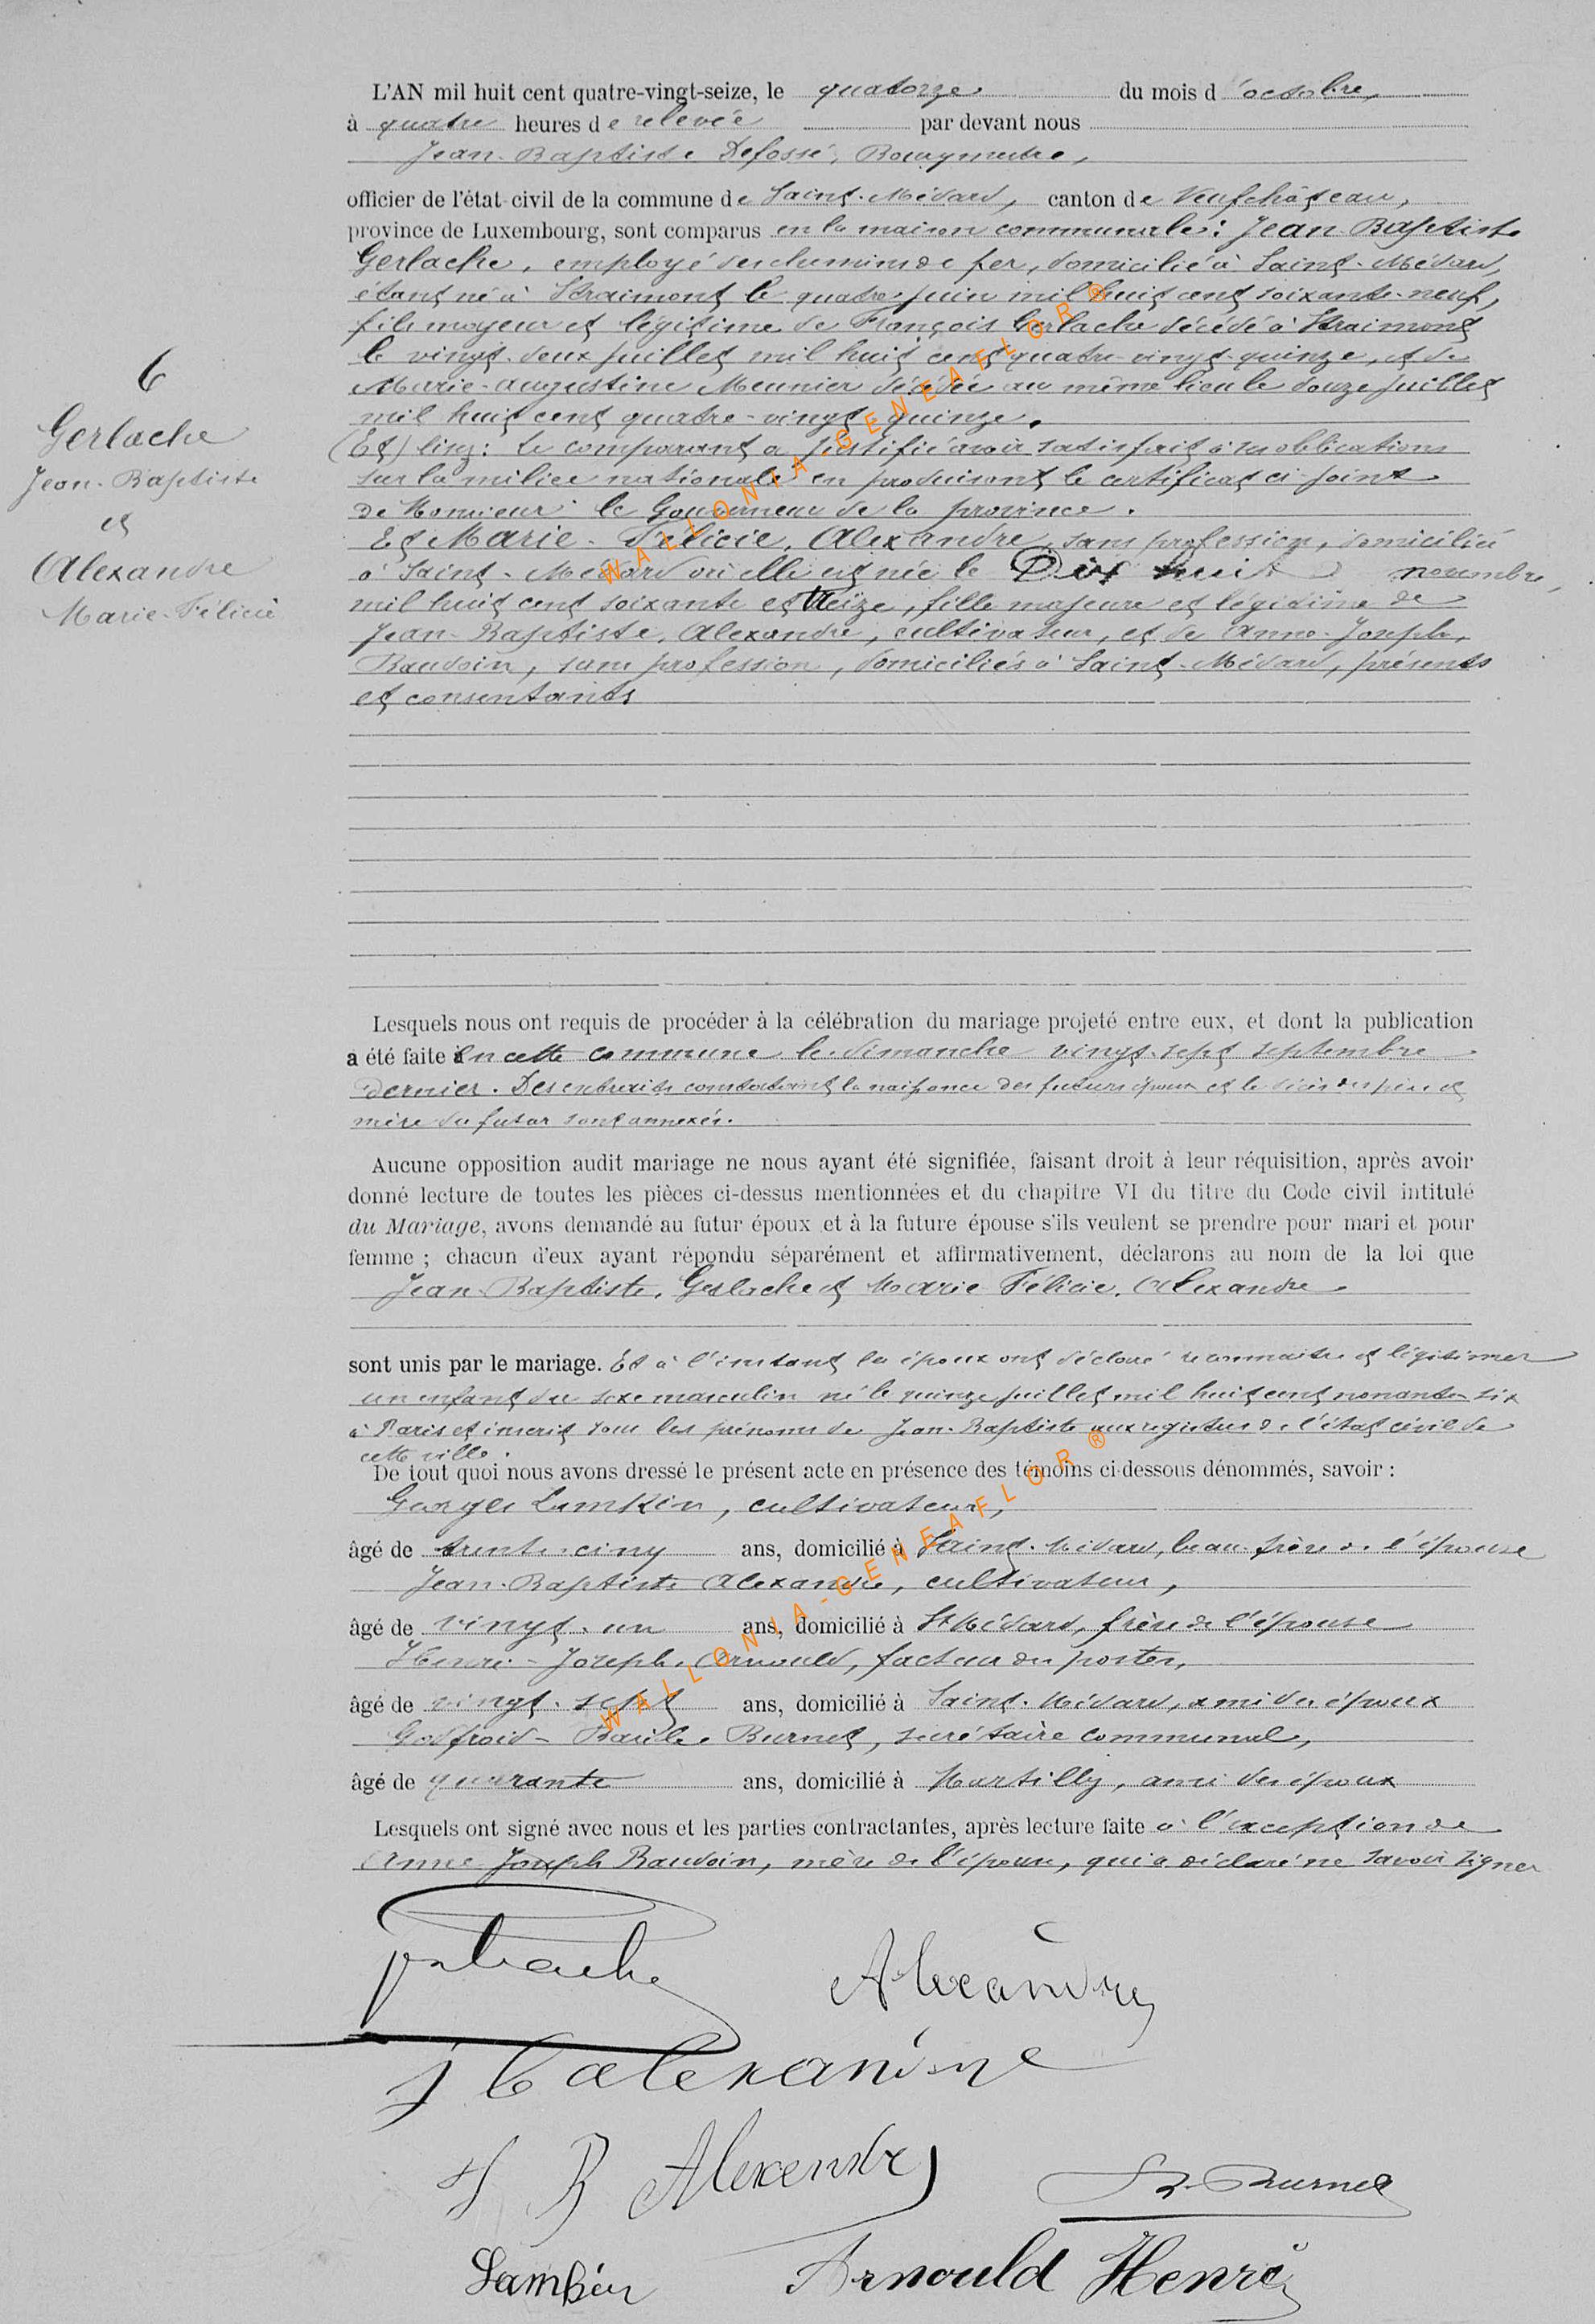 L'AN mil huit cent quatre-vingt-seize, le quatorze du mois d'octobre,
à quatre heures de relevée par devant nous
Jean-Baptiste Defossé, Bourgmestre,
officier de l'état-civil de la commune de Saint-Médard, canton de Neufchâteau,
province de Luxembourg, sont comparus en la maison communale: Jean-Baptiste
Gerlache, employé des chemins de fer, domicilié à Saint-Médard,
étant né à Straimont le quatre juin mil huit cent soixante-neuf,
fils majeur et légitime de François Gerlache décédé à Straimont
le vingt-deux juillet mil huit cent quatre-vingt-quinze, et de
Marie-Augustine Meunier décédée au même lieu le douze juillet
mil huit cent quatre-vingt-quinze.
le comparant a justifié avoir satisfait à ses obligations
sur la milice nationale en produisant le certificat ci-joint
de Monsieur le Gouverneur de la province.
Et Marie-Félicie, Alexandre, sans profession, domiciliée
à Saint-Médard où elle est née le Dix huit novembre
mil huit cent soixante et treize, fille majeure et légitime de
Jean-Baptiste, Alexandre, cultivateur, et de Anne-Joseph,
Baudoin, sans profession, domiciliés à Saint-Médard, présents
et consentants
6
Gerlache
Jean-Baptiste
et
Alexandre
Marie-Félicie
Lesquels nous ont requis de procéder à la célébration du mariage projeté entre eux, et dont la publication
a été faite en cette commune le dimanche vingt-sept septembre
dernier. Des extraits constatant la naissance des futurs époux et le décès des père et
mère du futur sont annexés.
Aucune opposition audit mariage ne nous ayant été signifiée, faisant droit à leur réquisition, après avoir
donné lecture de toutes les pièces ci-dessus mentionnées et du chapitre VI du titre du Code civil intitulé
du Mariage, avons demandé au futur époux et à la future épouse s'ils veulent se prendre pour mari et pour
femme ; chacun d'eux ayant répondu séparément et affirmativement, déclarons au nom de la loi que
Jean-Baptiste, Gerlache et Marie-Félicie, Alexandre
sont unis par le mariage. Et à l'instant les époux ont déclaré reconnaître et légitimer
un enfant du sexe masculin né le quinze juillet mil huit cent nonante six
à Paris et inscrit sous les prénoms de Jean-Baptiste aux registres de l'état civil de
cette ville.
De tout quoi nous avons dressé le présent acte en présence des témoins ci-dessous dénommés, savoir :
Georges Lambin, cultivateur,
âgé de trente-cinq ans, domicilié à Saint-Médard, beau-frère de l'épouse
Jean-Baptiste Alexandre, cultivateur,
âgé de vingt-un ans, domicilié à St Médard, frère de l'épouse
Henri-Joseph, Arnould, facteur des postes,
âgé de vingt-sept ans, domicilié à Saint-Médard, ami des époux
Godfroid-Basile, Burnet, secrétaire communal,
âgé de quarante ans, domicilié à Martilly, ami des époux
Lesquels ont signé avec nous et les parties contractantes, après lecture faite à l'exception de
Anne-Joseph Baudoin, mère de l'épouse, qui a déclaré ne savoir signer
Gerlache
Alexandre
J B alexandre
J B Alexandre
B. Burnet
Lambin
Arnould Henri
WALLONIA-GENEAFLOR ®
WALLONIA-GENEAFLOR ®